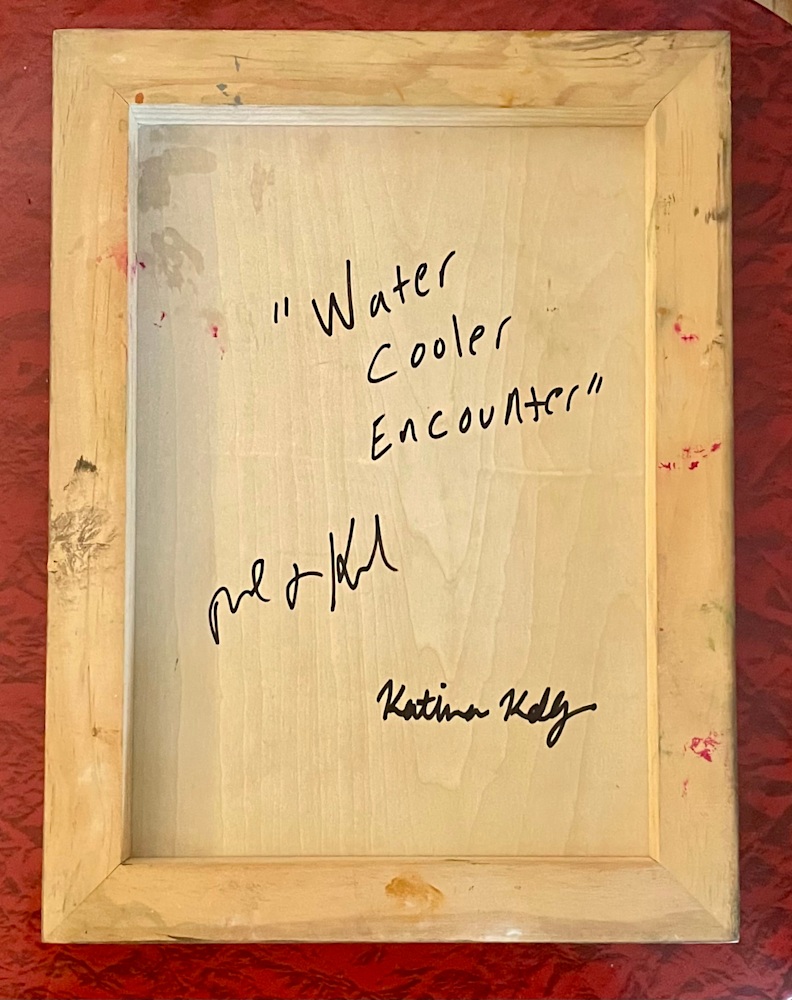 "Water
Cooler
Encounter"
Katina